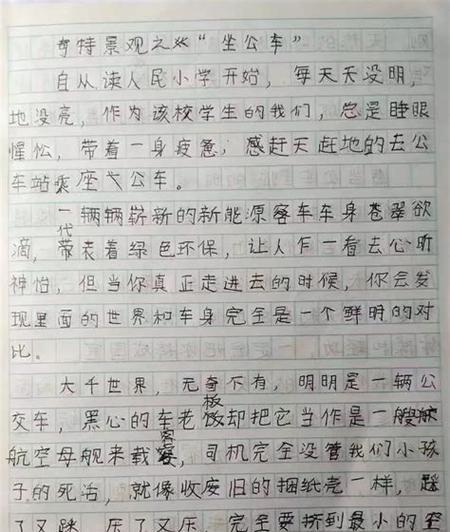 奇特景观之“坐公车”
自从读人民小学开始，每天天没明，
地没亮，作为该校学生的我们，总是睡眼
惺忪，带着一身疲惫，感赶天赶地的去公
车站乘座公车。
一辆辆崭新的新能源客车车身苍翠欲
滴，代表着绿色环保，让人乍一看去心旷
神怡，但当你真正走进去的时候，你会发
现里面的世界和车身完全是一个鲜明的对
比。
大千世界，无奇不有，明明是一辆公
交车，黑心的车老板却把它当作是一艘
航空母舰来载客，司机完全没管我们小孩
子的死活，就像收废旧的捆纸壳一样，踩
了又踩，压了又压，完全要挤到最小的空